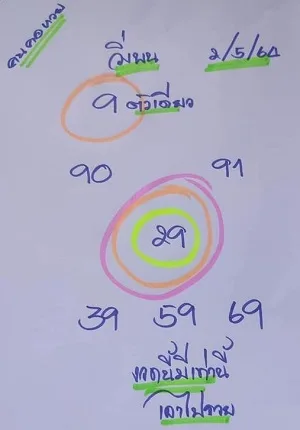 คนคอหวย
วิ่งบน 2/5/64
9 ตัวเดียว
90 91
29
39 59 69
งวดนี้มีเท่านี้
เอาไปรวย